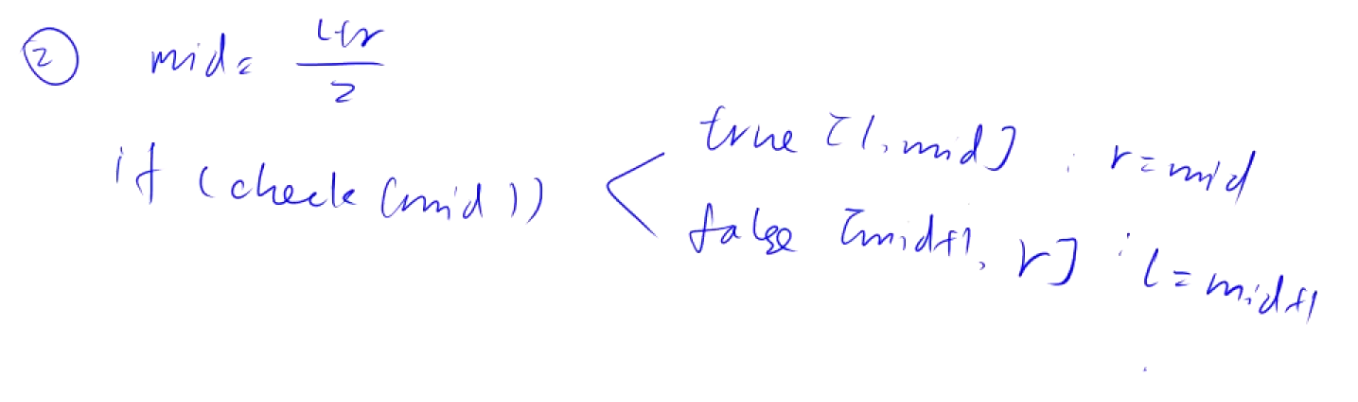 ② mid = l+r / 2
if (check(mid))
true [l, mid] r=mid
false [mid+1, r] l=mid+1